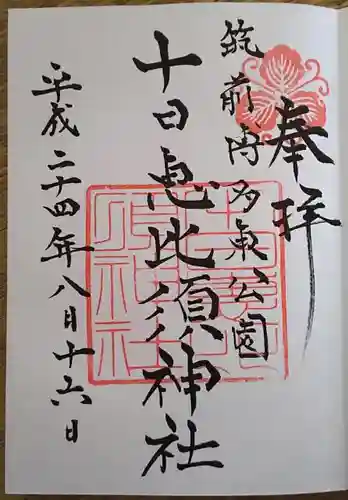 奉拝
筑前博多東公園
十日恵比須神社
平成二十四年八月十六日